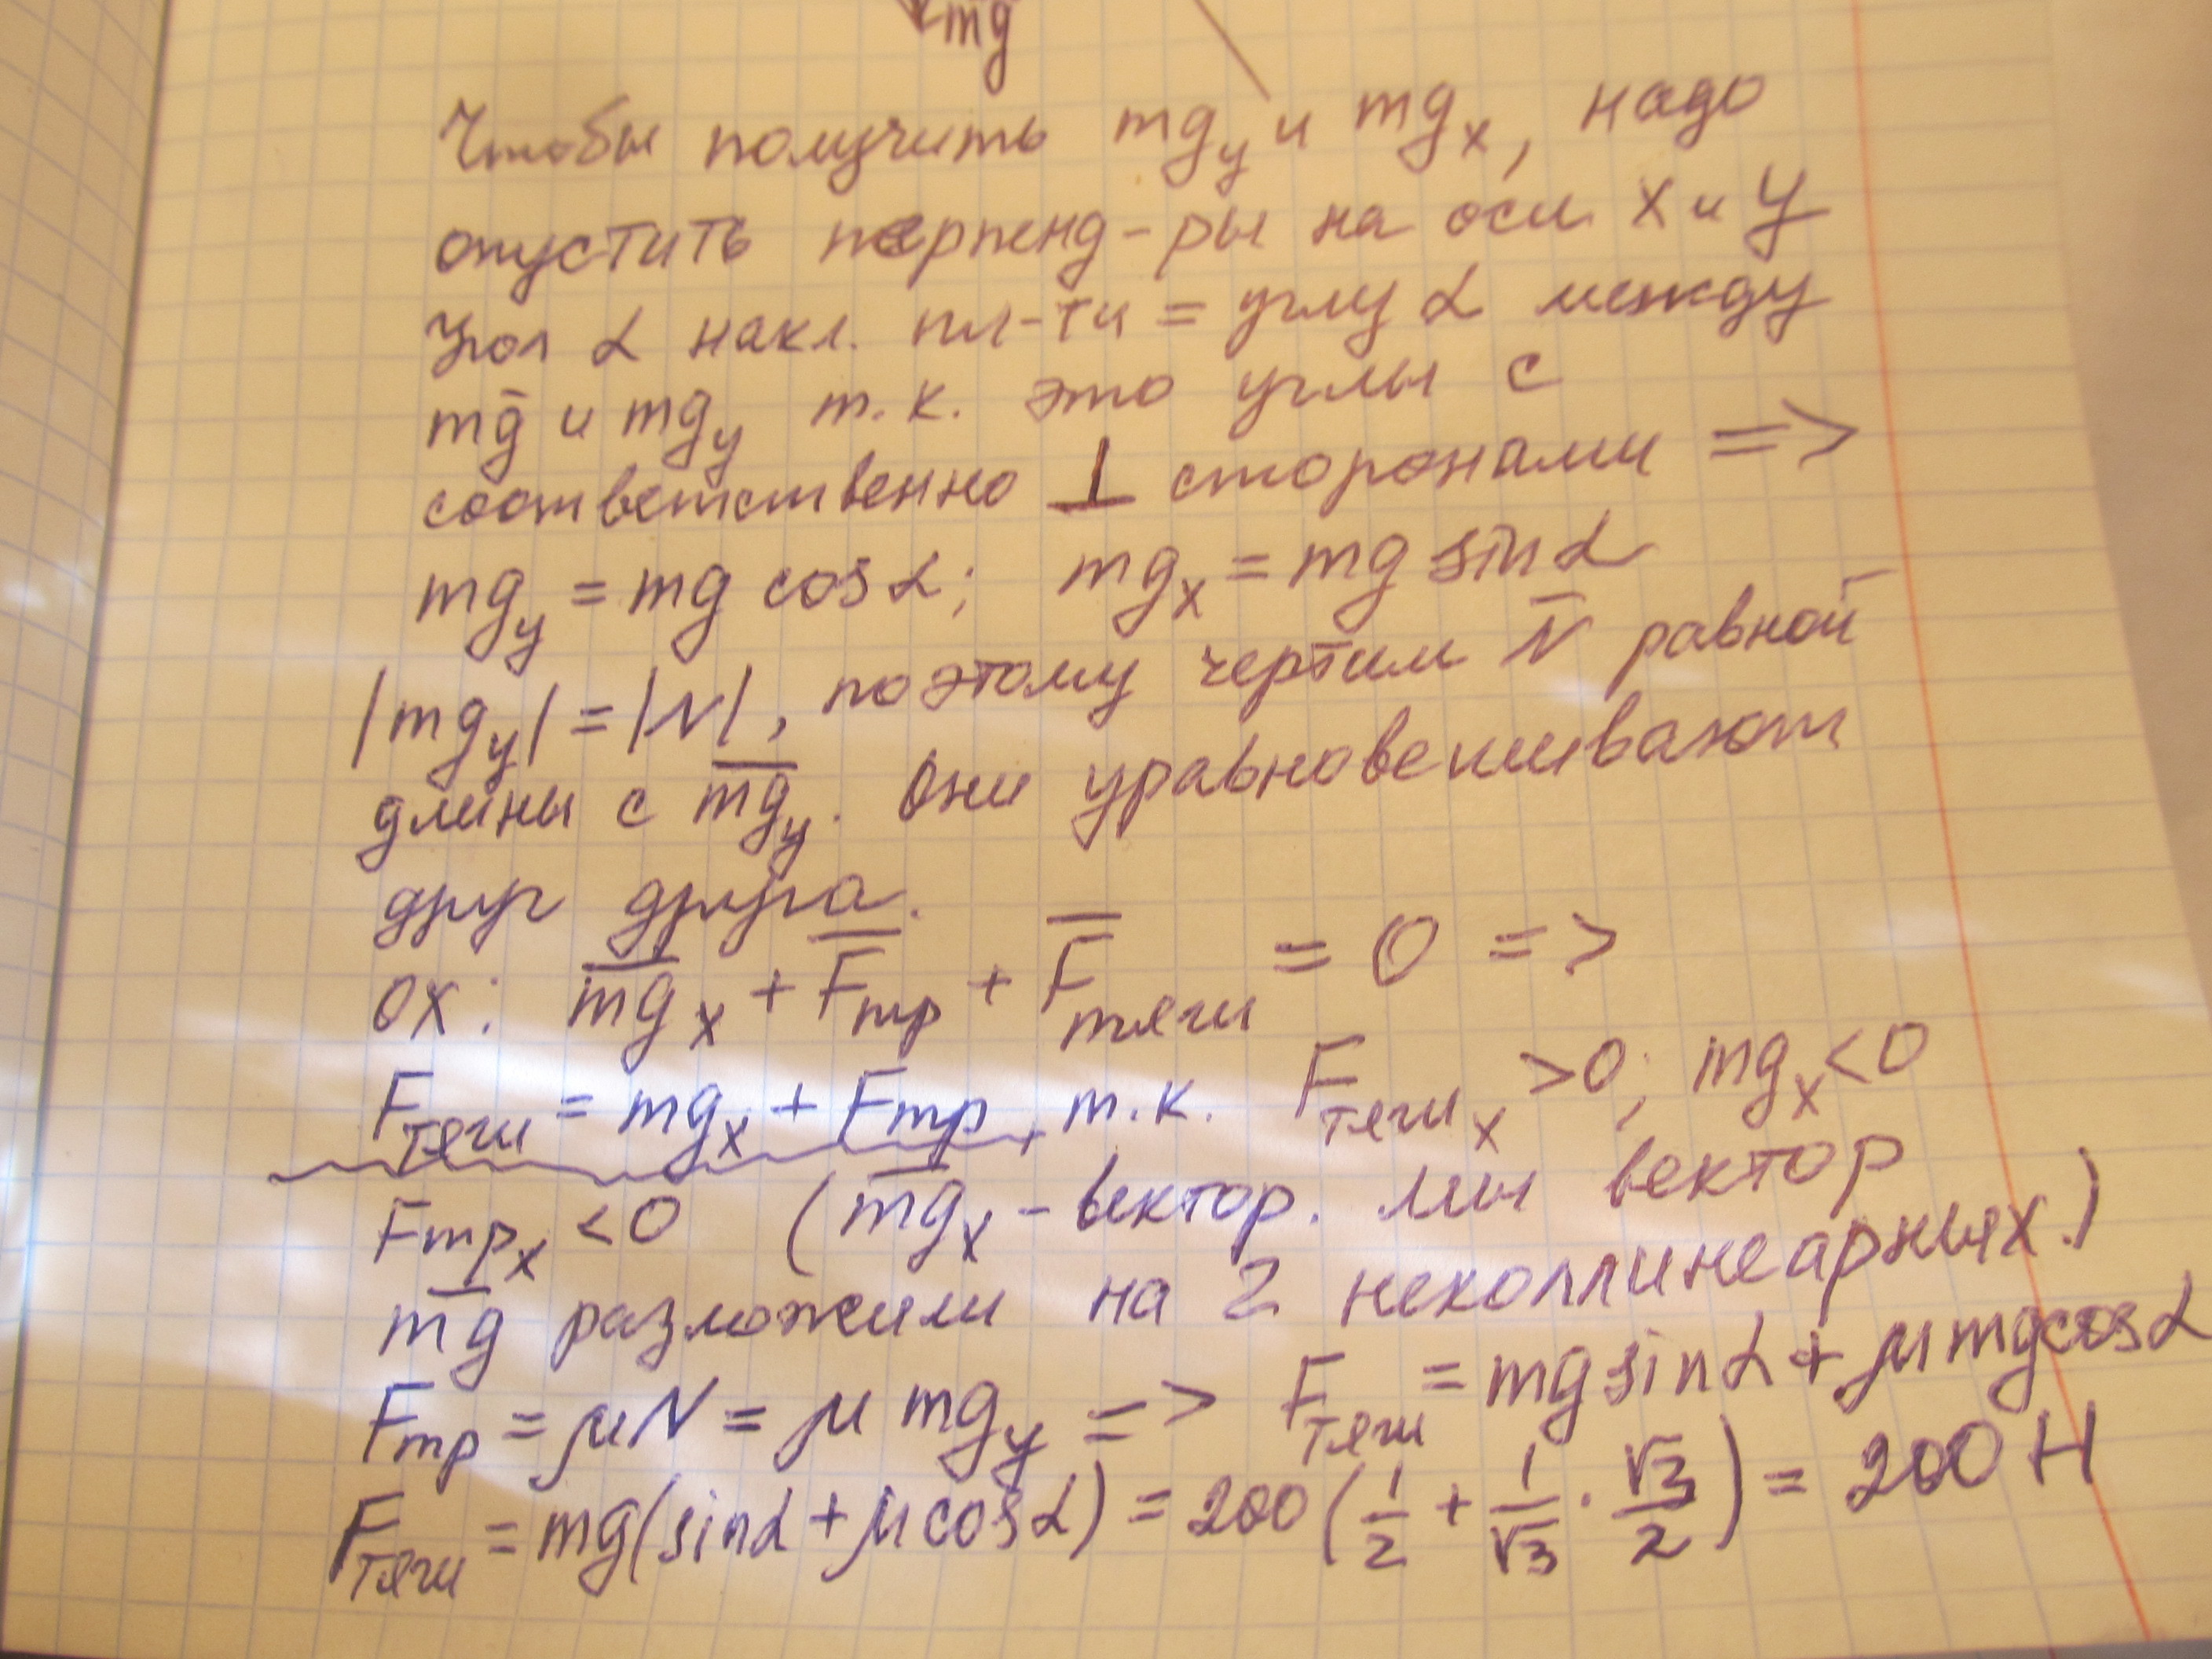 mg
Чтобы получить mgy и mgx, надо
опустить перпенд-ры на оси x и y
Угол α накл. пл-ти = углу α между
mḡ и mgy т.к. это углы с
соответственно ⊥ сторонами =>
mgy = mg cosα; mgx = mg sinα
|mgy| = |N|, поэтому чертим N̅ равной
длины с m̅g̅y. Они уравновешивают
друг друга.
ox: m̅g̅x + F̅тр + F̅тяги = 0 =>
Fтяги = mgx + Fтр, т.к. Fтягиx >0; mgx<0
Fтрx <0 (m̅g̅x - вектор. мы вектор
m̅g̅ разложили на 2 неколлинеарных.)
Fтр = μN = μ mgy => Fтяги = mg sinα + μ mg cosα
Fтяги = mg(sinα + μ cosα) = 200 (1/2 + 1/√3 · √3/2) = 200 Н